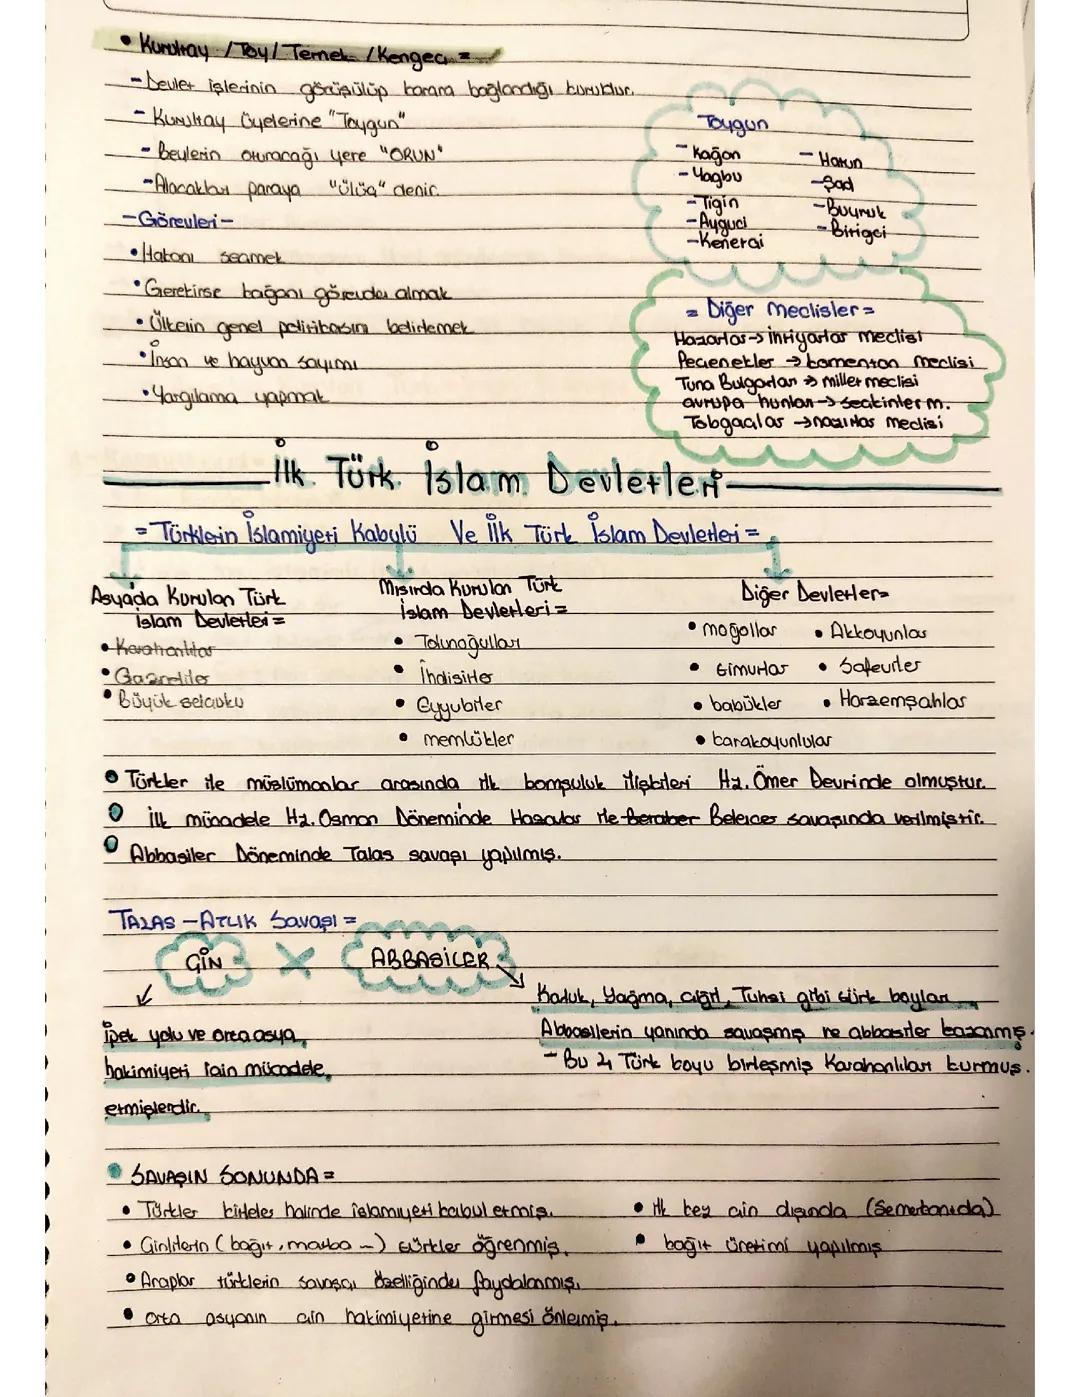 • Kurultay / Toy / Ternek / Kengeç =
- Devlet işlerinin görüşülüp karara bağlandığı kuruldur.
- Kurultay üyelerine "Toygun"
- Beylerin oturacağı yere "ORUN"
- Alacakları paraya "ülüş" denir.
- Görevleri -
• Hakanı seçmek
• Gerekirse kağanı görevden almak
• Ülkenin genel politikasını belirlemek
• İnsan ve hayvan sayımı
• Yargılama yapmak
Toygun
- Kağan
- Yagbu
- Tigin
- Ayguci
- Hatun
- Şad
- Buyruk
- Bitigçi
= Diğer Meclisler =
Hazarlar → ihtiyarlar meclisi
Peçenekler → komenton meclisi
Tuna Bulgarları → millet meclisi
avrupa hunları → seçkinler m.
Tabgaçlar → nazırlar meclisi
İlk Türk İslam Devletleri
= Türklerin İslamiyeti Kabulü Ve İlk Türk İslam Devletleri =
Asyada Kurulan Türk
İslam Devletleri =
• Karahanlılar
• Gazneliler
• Büyük selçuklu
Mısırda Kurulan Türk
İslam Devletleri =
• Tolunoğulları
• İhdisitler
• Eyyubiler
• memlükler
Diğer Devletler=
• moğollar
• timurlar
• babükler
• karakoyunlular
• Akkoyunlas
• Safeviler
• Harzemşahlar
• Türkler ile müslümanlar arasında ilk komşuluk ilişkileri Hz. Ömer Devrinde olmuştur.
• ilk mücadele Hz. Osman Döneminde Hasarlar ile Beraber Belencer savaşında verilmiştir.
• Abbasiler Döneminde Talas savaşı yapılmış.
TALAS - ATLIK Savaşı =
ÇİN X ABBASİLER
ipek yolu ve orta asya
hakimiyeti için mücadele
etmişlerdir.
Karluk, Yağma, çiğil, Tuhsi gibi türk boyları
Abbasilerin yanında savaşmış ve abbasiler kazanmış.
- Bu 4 Türk boyu birleşmiş Karahanlıları kurmuş.
• SAVAŞIN SONUNDA =
• Türkler kitleler halinde islamiyeti kabul etmiş.
• Çinlilerin (kağıt, matba -) türkler öğrenmiş.
• Araplar türklerin savaşçı özelliğinden faydalanmış.
• orta asyanın çin hakimiyetine girmesi önlenmiş.
• ilk kez çin dışında (Semerkantda)
• kağıt üretimi yapılmış